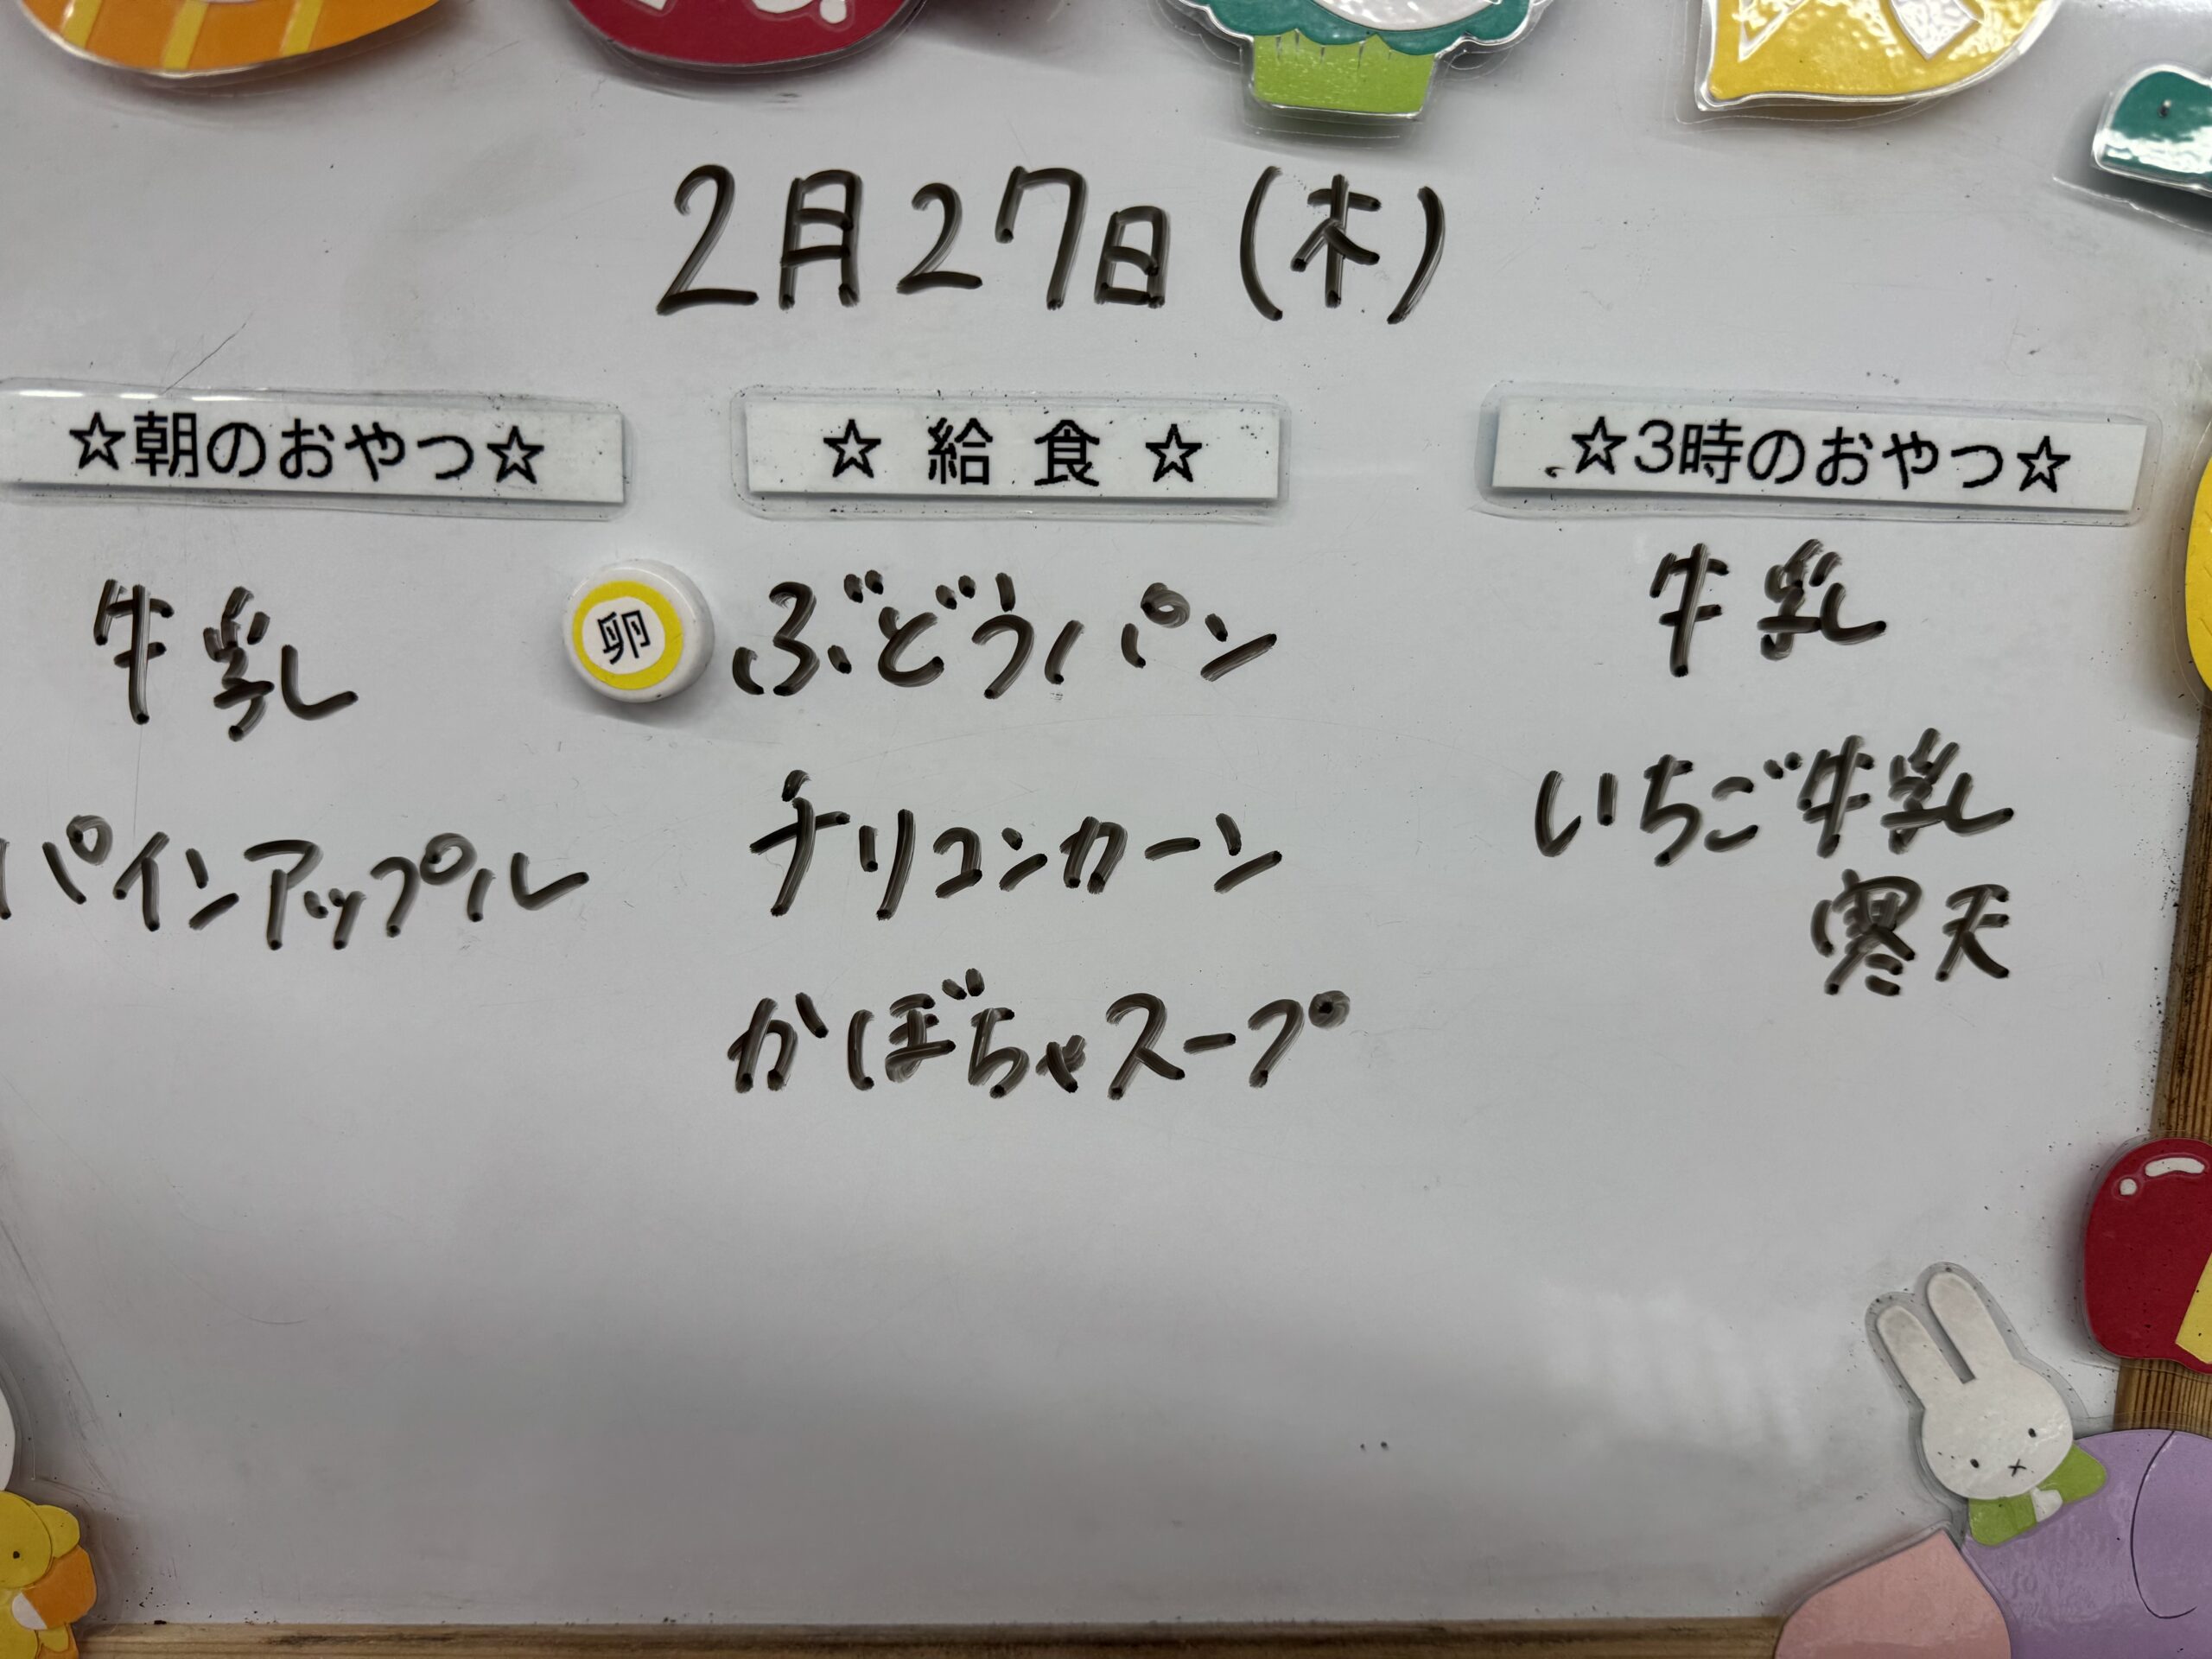 2月27日(木)
☆朝のおやつ☆
牛乳
パインアップル
☆ 給 食 ☆
卵 ぶどうパン
チリコンカーン
かぼちゃスープ
☆3時のおやつ☆
牛乳
いちご牛乳
寒天